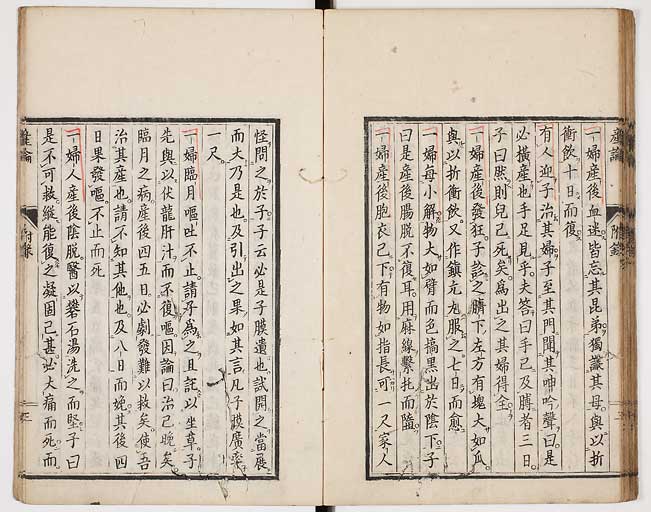 産論 附録
一婦産後血迷皆忘其昆弟獨識其母與以折
衝飲十日而復
有人迎子治其婦子至其門聞其呻吟聲曰是
必横産也手足見乎夫荅曰手已及膊者三日
子曰然則兒已死矣爲出之其婦得全
一婦産後發狂子診之臍下左方有塊大如瓜
與以折衝飲又作鎮亢丸服之七日而愈
一婦每小解物大如臂而色搞黒出於陰下子
曰是産後腸脱不復耳用麻線繫托而
一婦産後胞衣已下有物如指長可一尺家人
怪問之於子子云必是子膜遺也試開之當展
而大乃是也及引出之果如其言凡子膜廣
一尺
一婦臨月嘔吐不止請子爲之且託以坐草子
先與以伏龍肝汁而不復嘔因論曰治已晩矣
臨月之病産後四五日必劇發難以救矣使吾
治其産也請不知其他也及八日而娩其後四
日果發嘔不止而死
一婦人産後陰脱醫以礬石湯洗之而堅子曰
是不可救縱能復之凝固已甚必大痛而死而
産論 附録